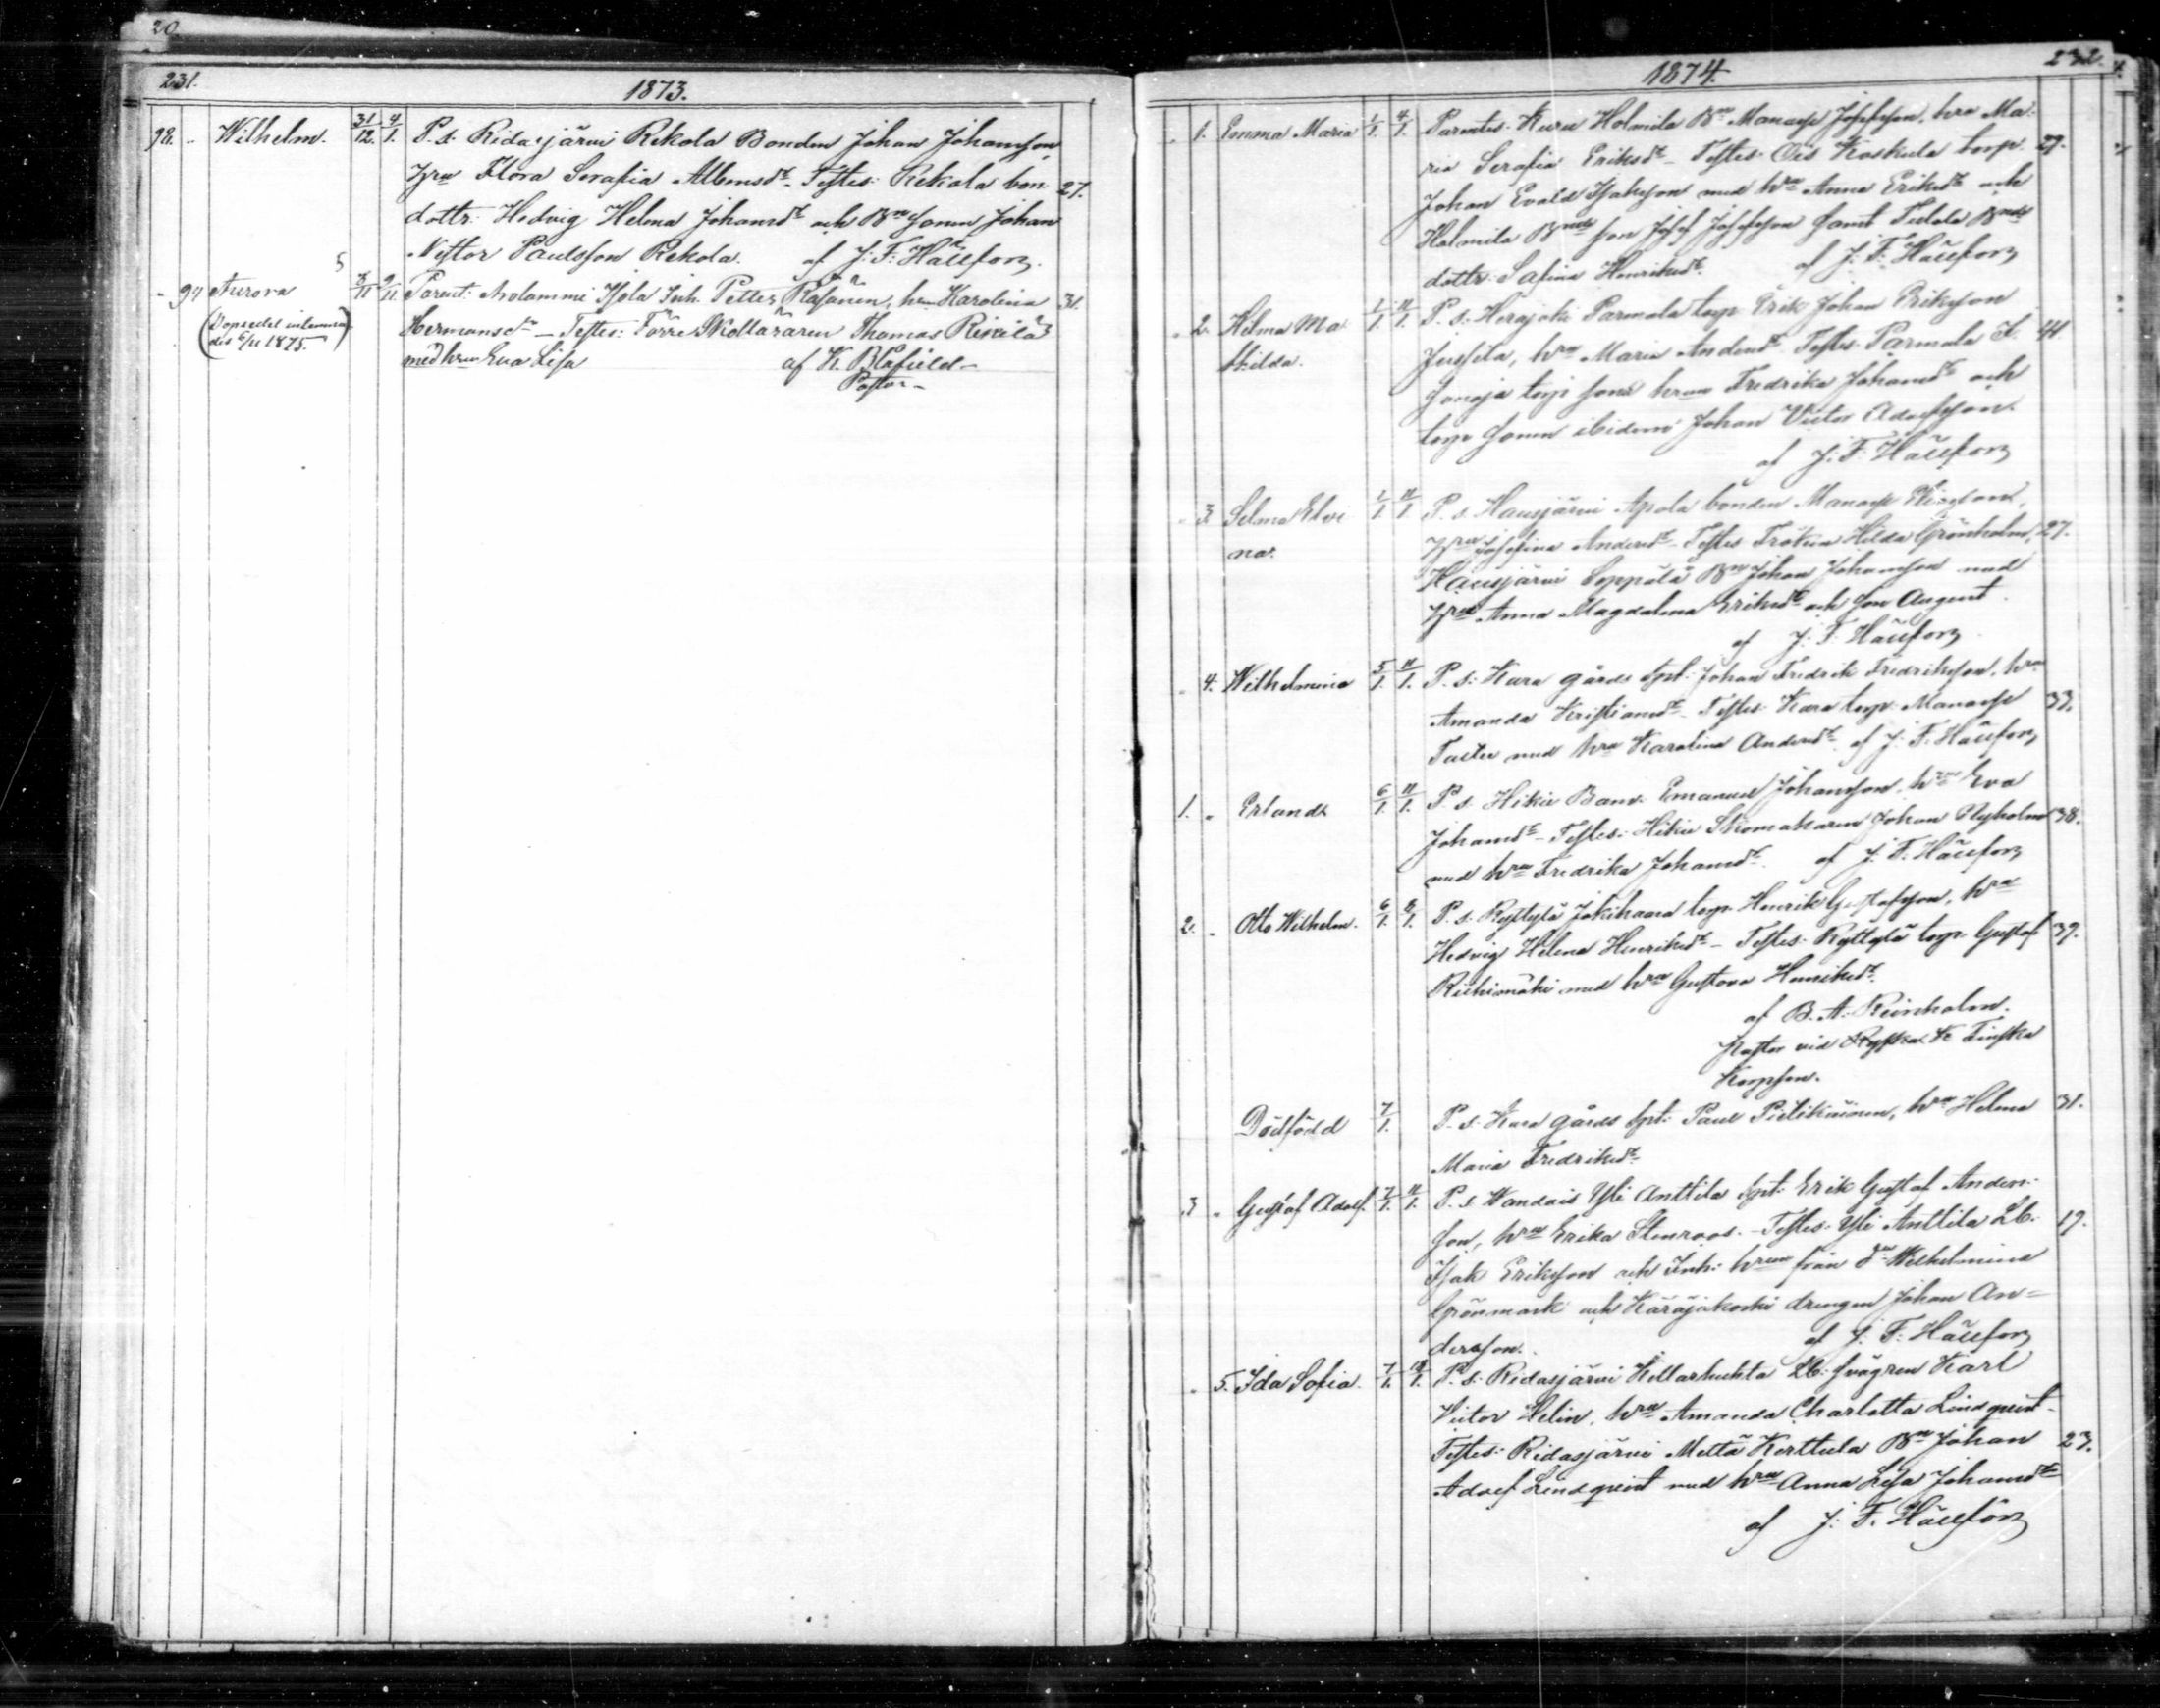 20.
231.
1873.
98. Wilhelm. 31/12. 4/1. P. s. Ridasjärvi Rekola Bonden Johan Johansson
Hru Flora Serafia Albinsdr. Testes: Rekola bon- 27.
dottr. Hedvig Helena Johansdr och Bn sonen Johan
Nestor Paulsson Rekola. af J. F. Hällfors.
94 Aurora 3/11 9/11 Parent: Arolammi Isola Inh. Petter Räsänen, hru Karolina 31.
(Dopsedel intemna- Hermansdr – Testes: Förre Skolläraren Thomas
des 6/11 1875.) med hru Eva Lisa af K. Blåfield
Pastor
232.
1874.
1. Emma Maria 1/1. 4/1. Parentes: Kuru Holmila Bn Manasse Josefsson, hru Ma-
ria Serafia Eriksdr – Testes: Ois Koskula torp. 29.
Johan Evald Isaksson med hru Anna Eriksdr och
Holmila Bnde son Josef Josefsson samt Bnde
dottr. Safina Henriksdr. af J. F. Hällfors
2. Helma Ma- 1/1. 11/1. P. s. Herajoki Parmala torp Erik Johan Eriksson
thilda. Jussila, hru Maria Andersdr Testes: Parmala 44.
torp sons hrun Fredrika Johansdr och
torp sonen ibidem Johan Victor Adolfsson.
af J. F. Hällfors
3. Selma Elvi- 1/1. 11/1. P. s. Hausjärvi Apola bonden Manasse
na. Hru Josefina Andersdr – Testes Fröken Hilda Grönholm, 27.
Hausjärvi Seppälä Bn Johan Johansson med
Hru Anna Magdalena Eriksdr och son August.
af J. F. Hällfors
4. Wilhelmina 5/1. 11/1. P. s. Kara gårds Spt. Johan Fredrik Fredriksson, hru
Amanda Kristiansdr – Testes: Kara torp. Manasse 33.
med hru Karolina Andersdr. af J. F. Hällfors
1. Erland 6/1. 11/1. P. s. Hikiä Banv. Emanuel Johansson, hru Eva
Johansdr – Testes: Hikiä Skomakaren Johan Nyholm 38.
med hru Fredrika Johansdr. af J. F. Hällfors
2. Otto Wilhelm. 6/1. 8/1. P. s. Ryttylä Jokihaara torp. Henrik Gustafsson, hru
Hedvig Helena Henriksdr – Testes: Ryttylä torp. Gustaf 39.
Riihimäki med hru Gustava Henriksdr.
af B. A. Reinholm.
Pastor vid Ryska & Finska
Dödfödd 7/1. P. s. Kara gårds Spt. Paul Pietikäinen, hru Helena 31.
Maria Fredriksdr.
3. Gustaf Adolf. 7/1. 11/1. P. s. Wandais Yli Anttila Spt. Erik Gustaf Anders-
son, hru Erika Stenroos. – Testes: Yli Anttila Lb. 19.
Isak Eriksson och Inh. hrun från do Wilhelmina
Grönmark och Käräjäkoski drengen Johan An-
dersson. af J. F. Hällfors
5. Ida Sofia. 7/1. 18/1. P. s. Ridasjärvi Kellarhuhta Lb. svågren Karl
Victor Helin, hru Amanda Charlotta Lindqvist –
Testes: Ridasjärvi Mettä Kerttula Bn Johan 23.
Adolf Lindqvist med hru Anna Lisa Johansdr
af J. F. Hällfors